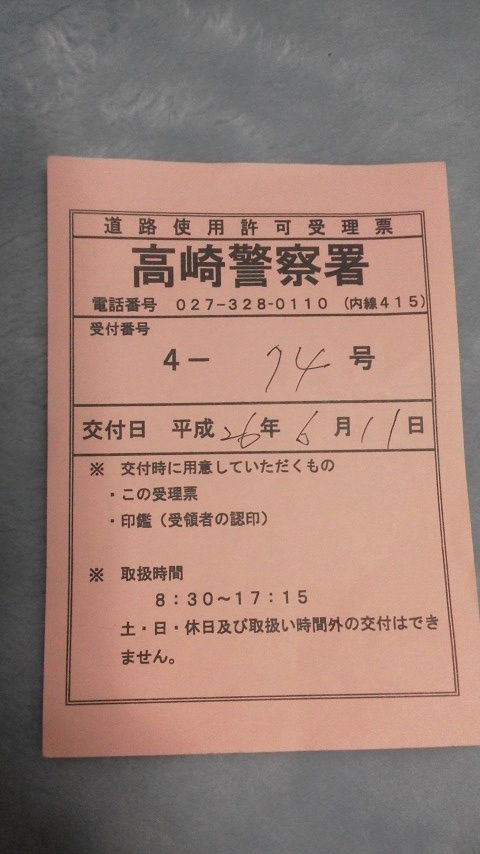 道路使用許可受理票
高崎警察署
電話番号 ０２７－３２８－０１１０ （内線４１５）
受付番号
４－ 74 号
交付日 平成26年 6月11日
※ 交付時に用意していただくもの
・この受理票
・印鑑（受領者の認印）
※ 取扱時間
８：３０～１７：１５
土・日・休日及び取扱い時間外の交付はでき
ません。